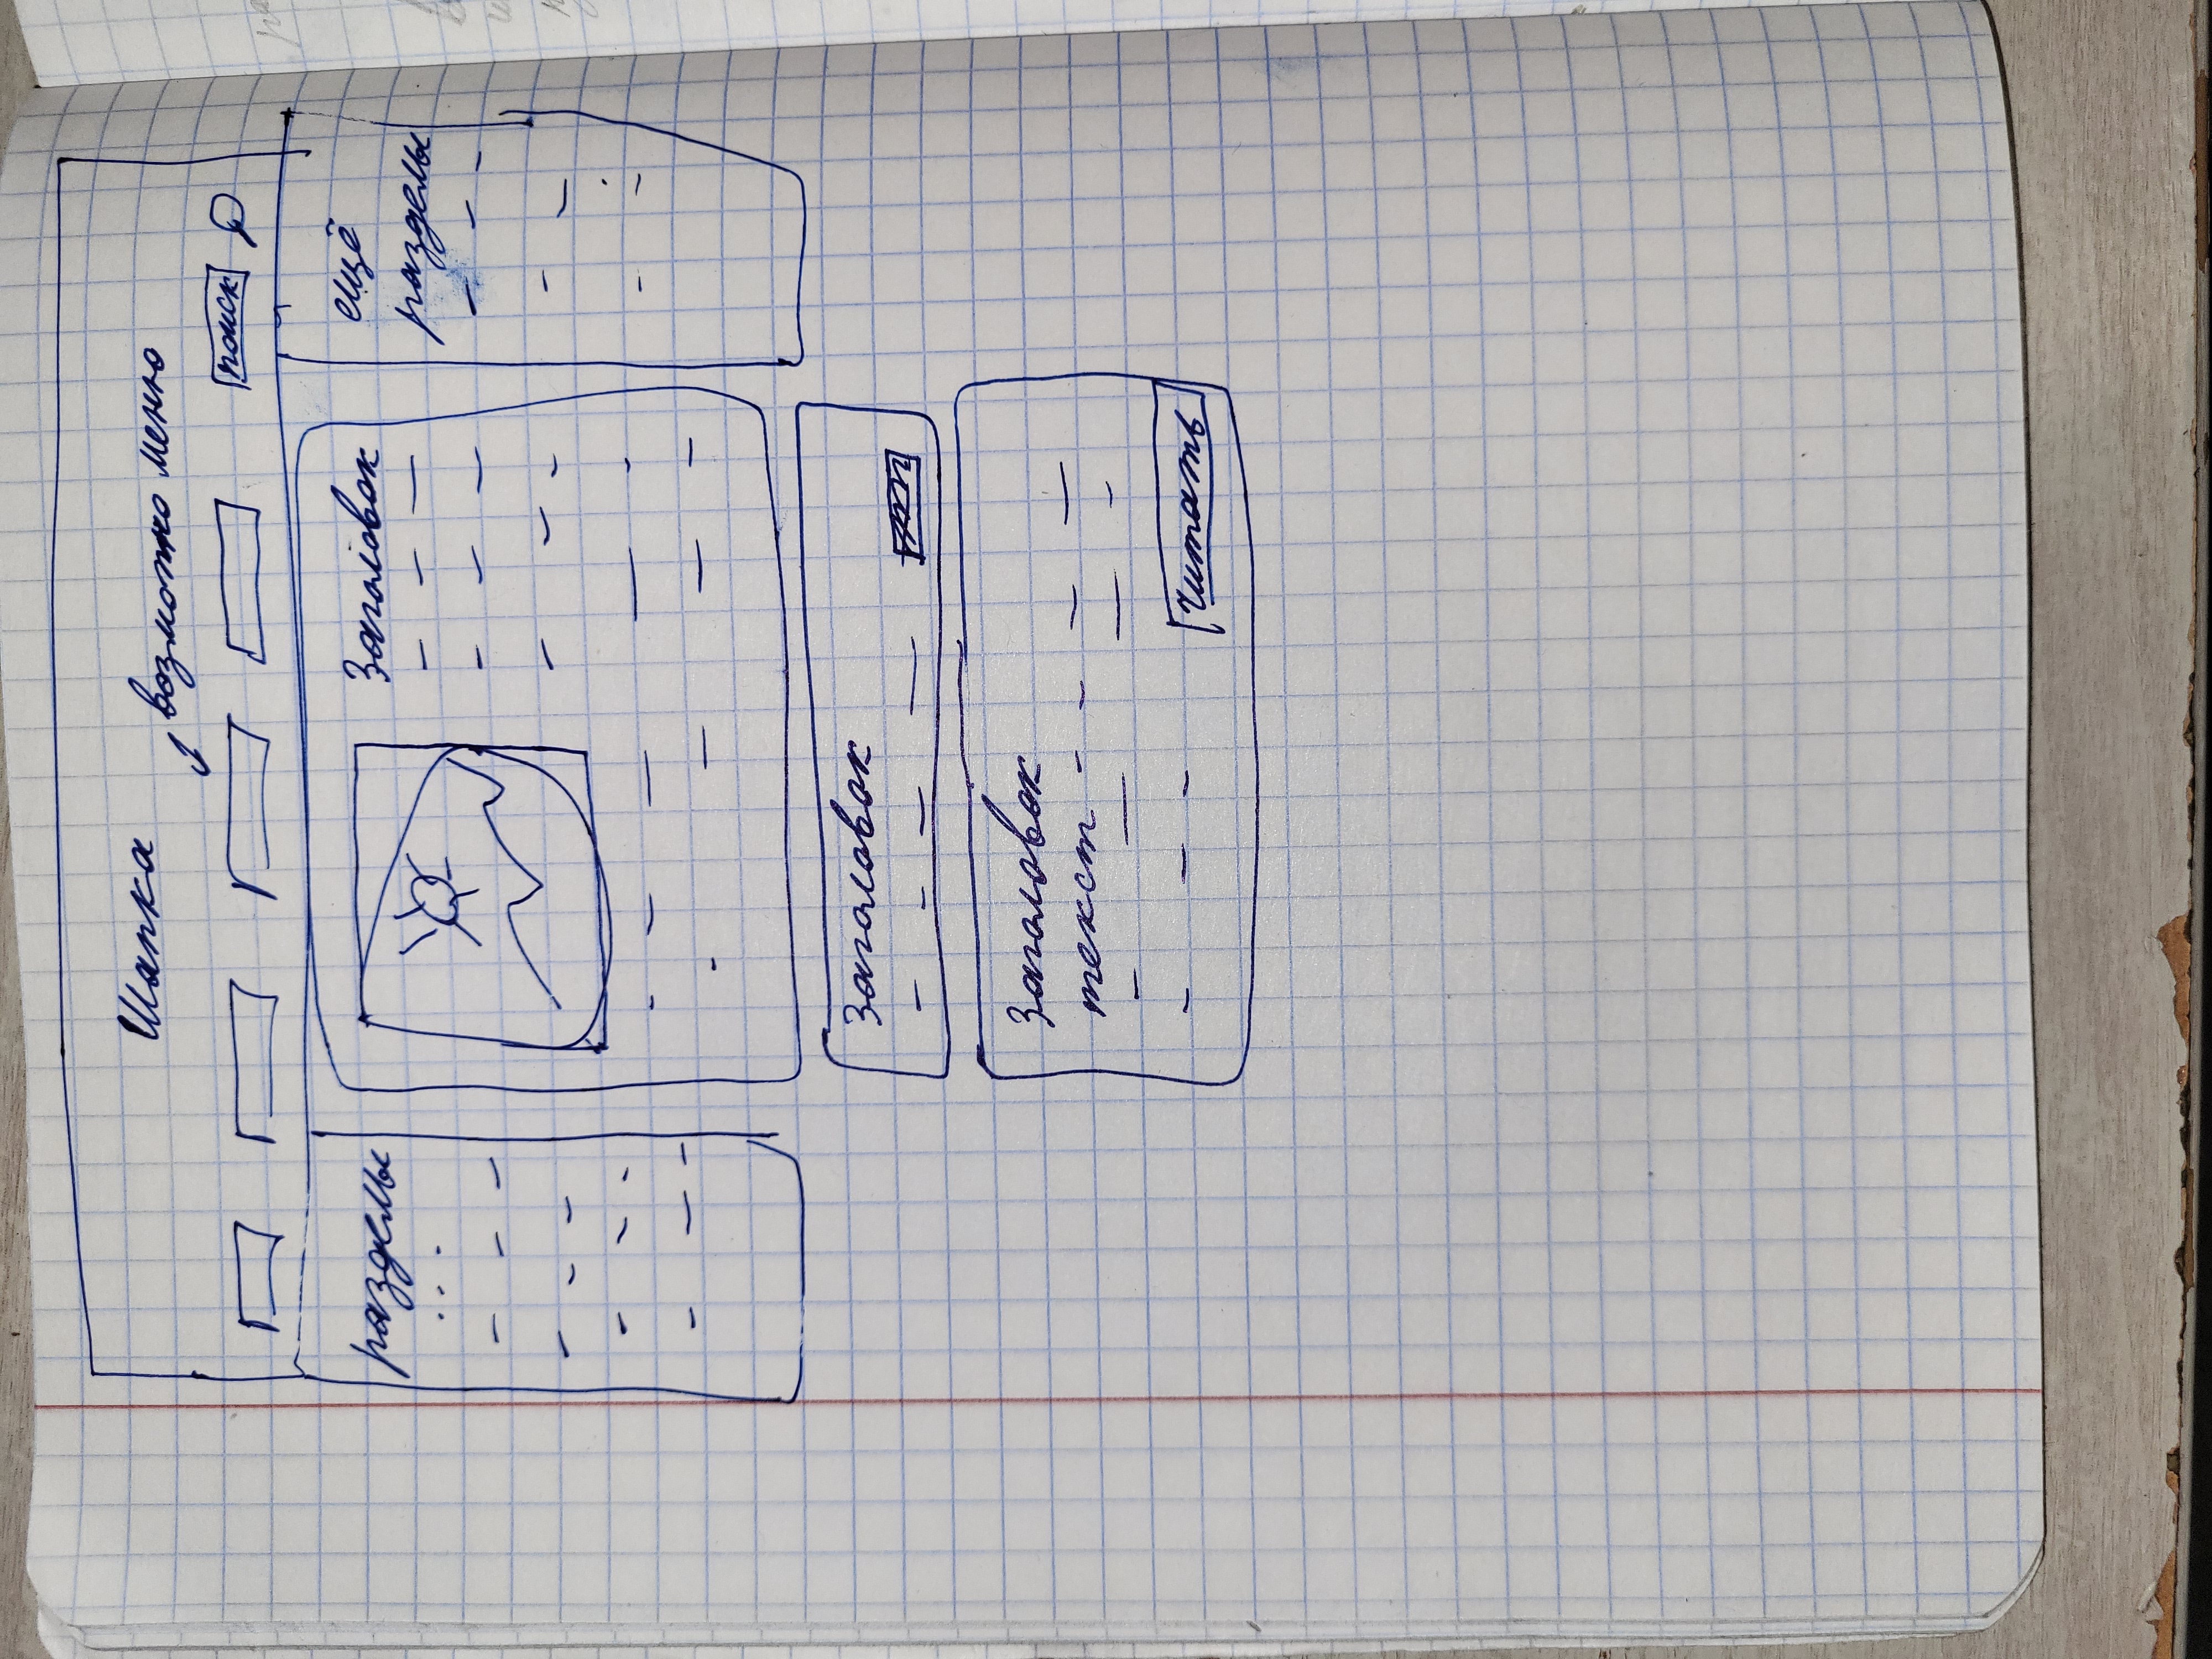 Шапка
возможно меню
поиск
разделы
...
Заголовок
ещё
разделы
Заголовок
Заголовок
текст
читать